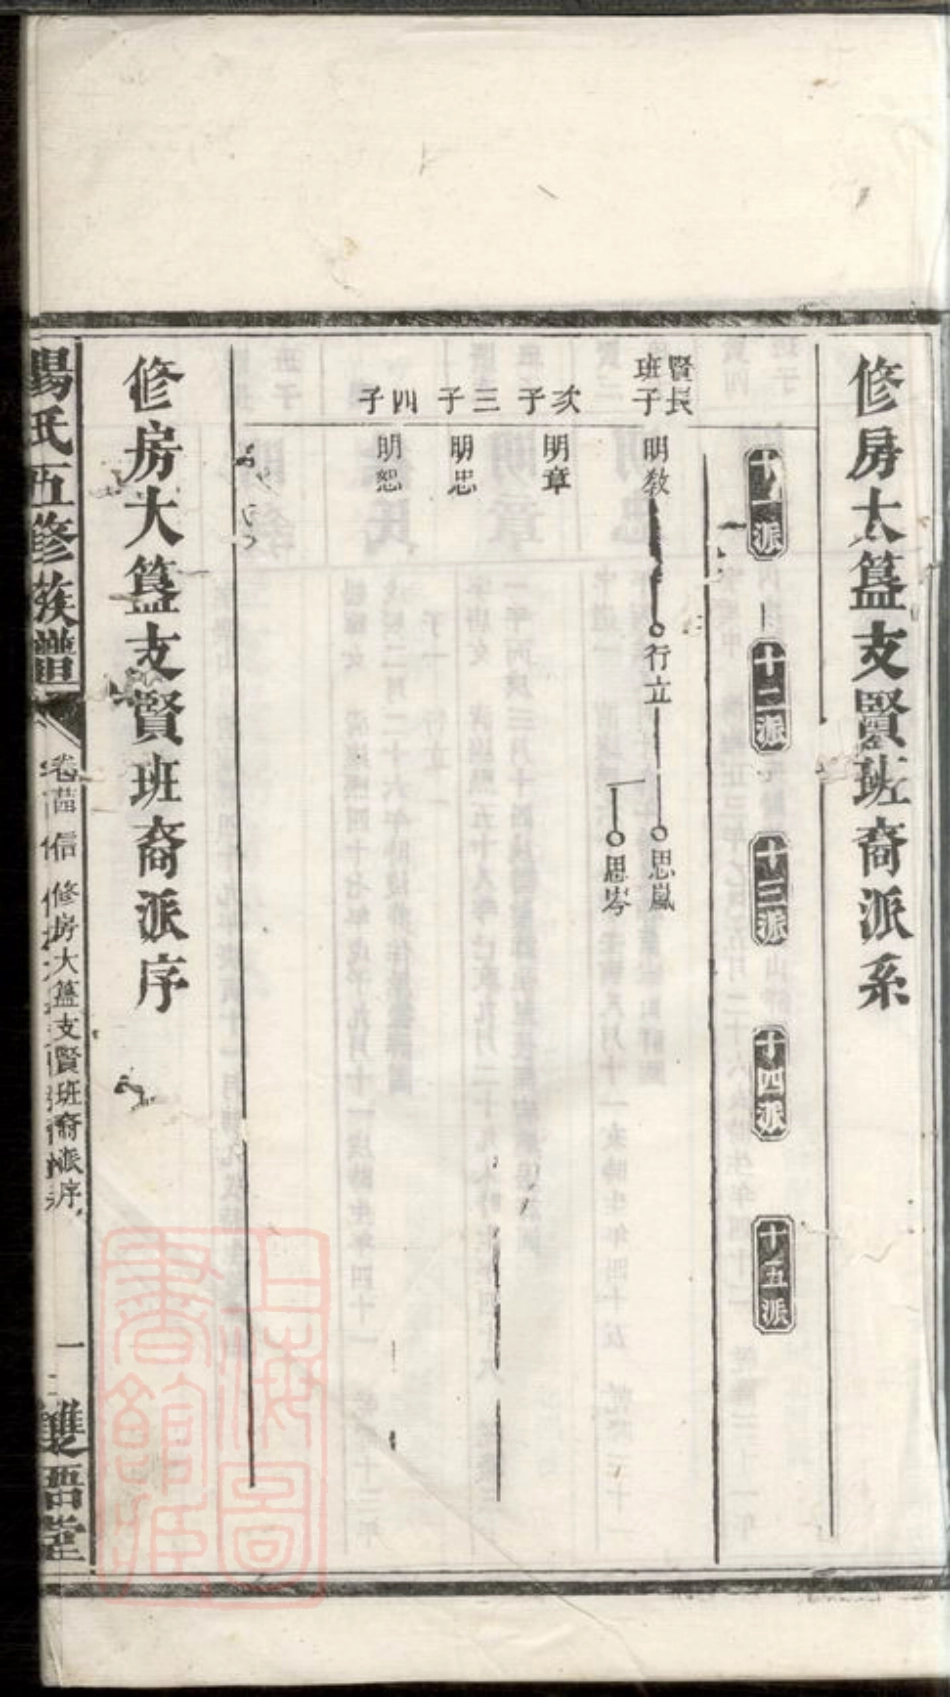 修房大簋支賢班裔派系
十一派
十二派
十三派
十四派
十五派
賢長
班子
明教
行立
思嵐
思岑
次子
明章
三子
明忠
四子
明恕
修房大簋支賢班裔派序
氏五修族譜
修房大簋支賢班裔派序
一
雙
堂
上海圖
書館